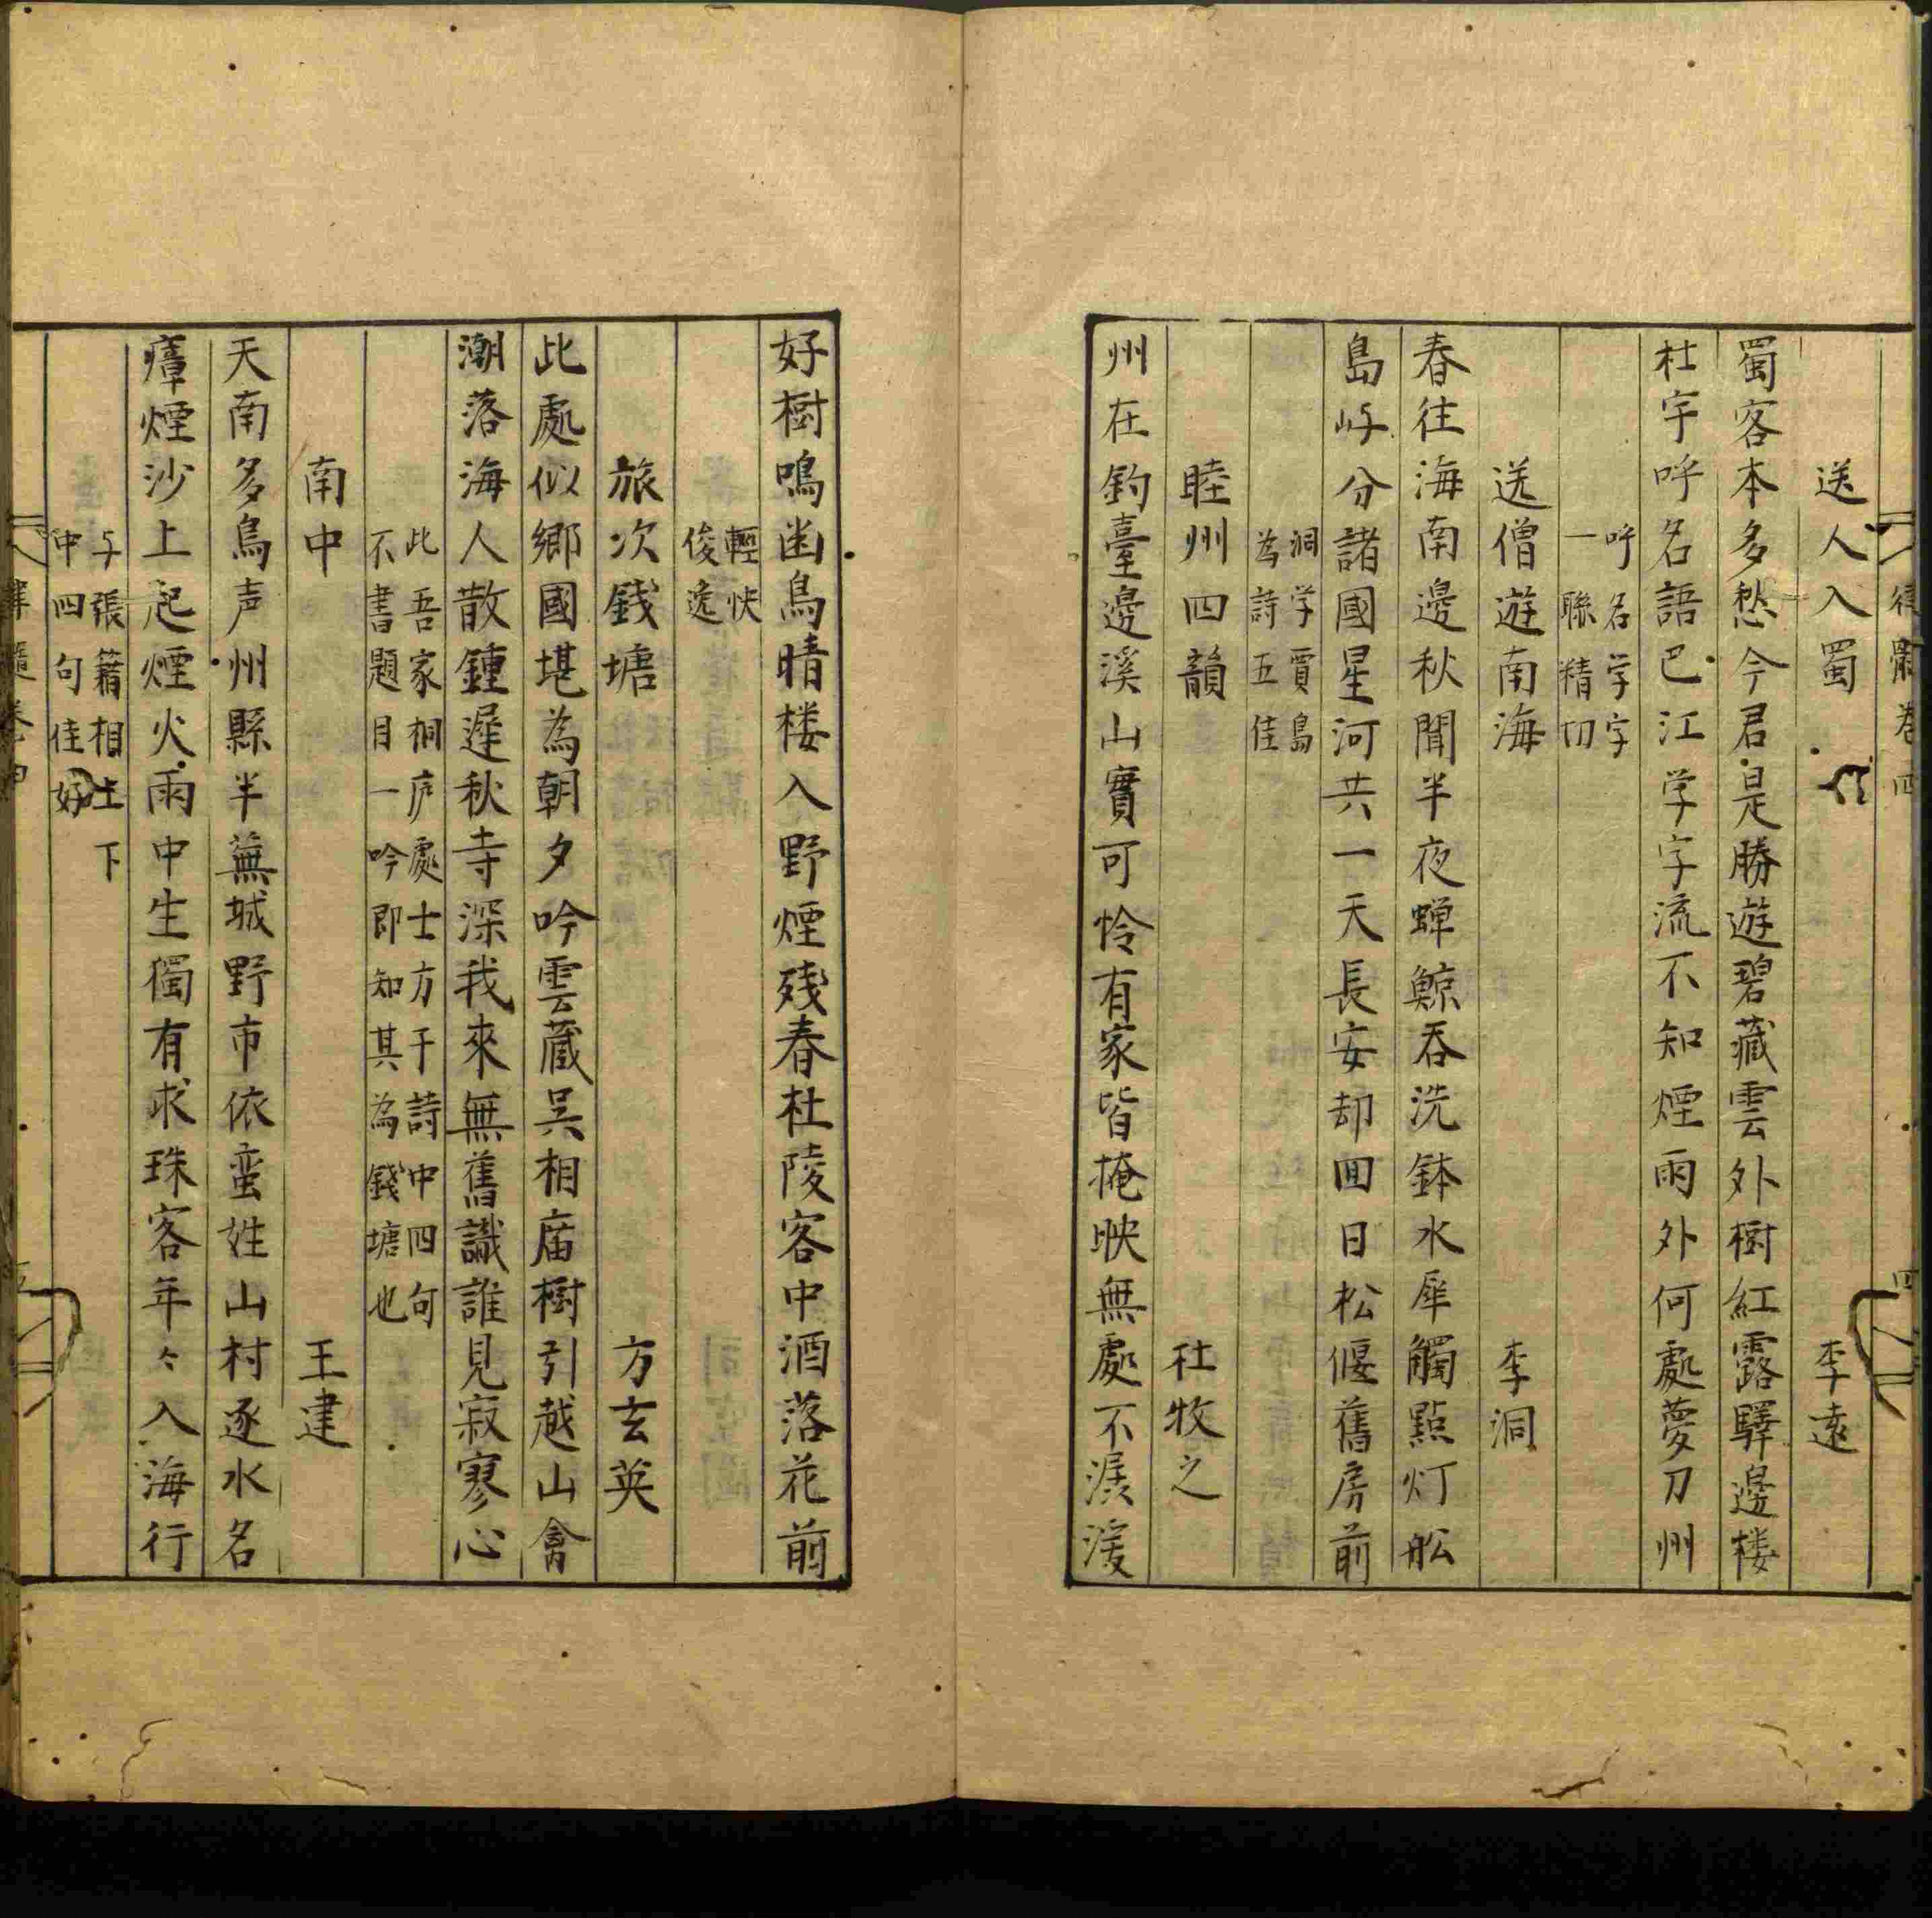 律髓卷四 四
送人入蜀 李遠
蜀客本多愁今君是勝遊碧藏雲外樹紅露驛邊楼
杜宇呼名語巴江学字流不知煙雨外何處夢刀州
呼名学字
一聯精切
送僧遊南海 李洞
春往海南邊秋聞半夜蝉鯨吞洗鉢水犀觸點灯舩
島屿分諸國星河共一天長安却囬日松偃舊房前
洞学賈島
為詩五佳
睦州四韻 杜牧之
州在釣臺邊溪山實可怜有家皆掩映無處不潺湲
好樹鳴幽鳥晴楼入野煙残春杜陵客中酒落花前
輕快
俊逸
旅次錢塘 方玄英
此處似郷國堪為朝夕吟雲蔵吴相庙樹引越山禽
潮落海人散鍾遲秋寺深我來無舊識誰見寂寥心
此吾家桐庐處士方于詩中四句
不書題目一吟即知其為錢塘也
南中 王建
天南多鳥声州縣半蕪城野市依蛮姓山村逐水名
瘴煙沙上起煙火雨中生獨有求珠客年々入海行
与張籍相上下
中四句佳好
律髓卷四 五